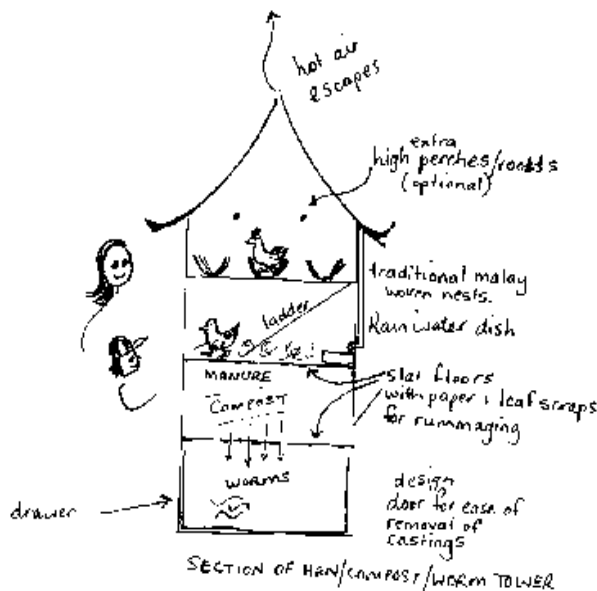 hot air
escapes
extra
high perches/roosts
(optional)
traditional malay
woven nests.
ladder
Rain water dish
MANURE
slat floors
with paper + leaf scraps
for rummaging
COMPOST
WORMS
drawer
design
door for ease of
removal of
castings
SECTION OF HEN/COMPOST/WORM TOWER